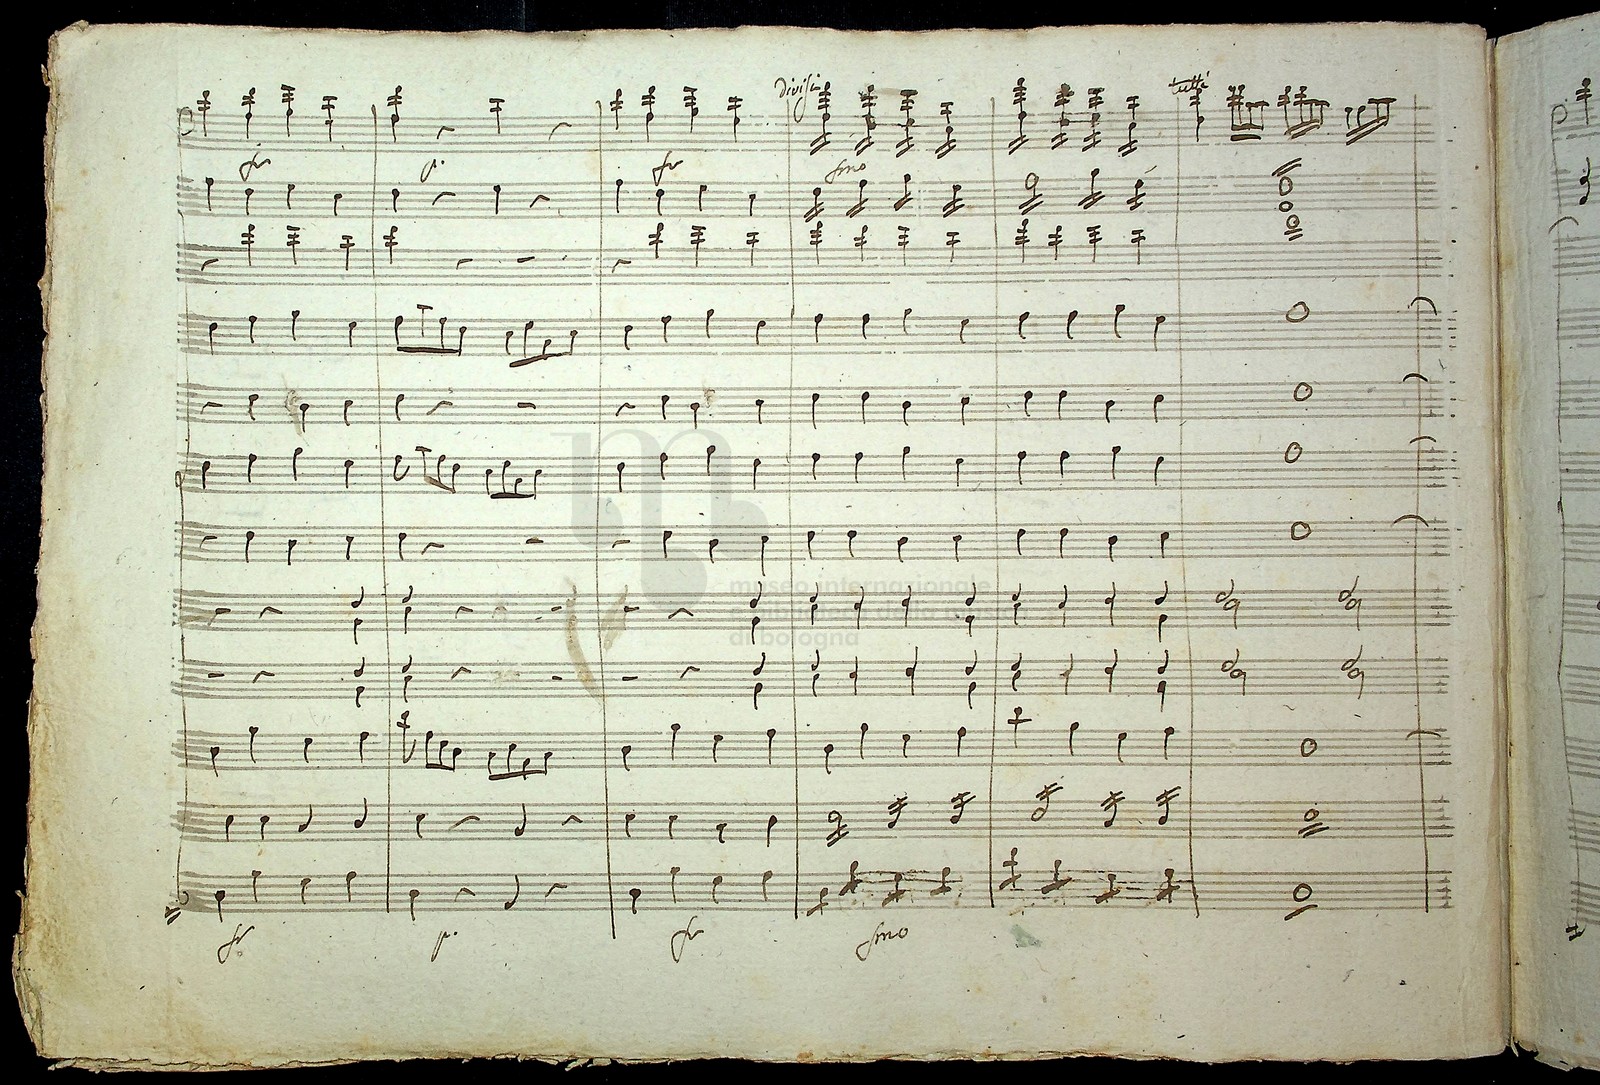 divisi
tutti
fr
p.
fr
fmo
museo internazionale
e biblioteca della musica
di bologna
fr
p.
fr
fmo